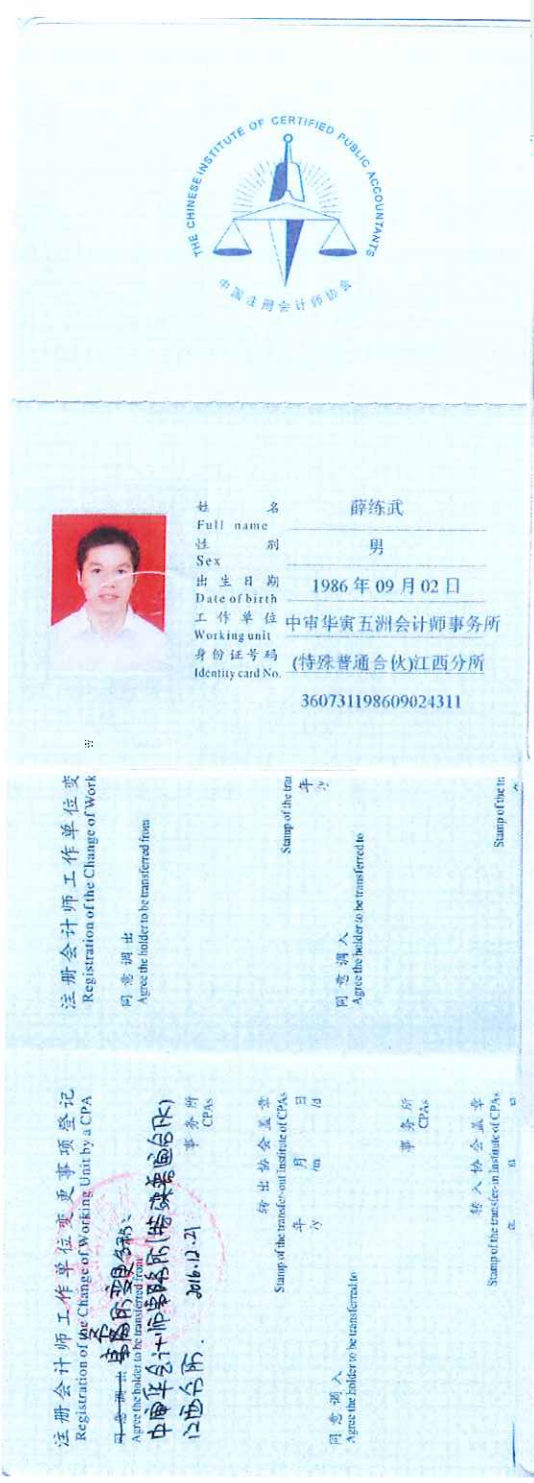 THE CHINESE INSTITUTE OF CERTIFIED PUBLIC ACCOUNTANTS
中国注册会计师协会
姓 名 薛练武
Full name
性 别 男
Sex
出生日期 1986年09月02日
Date of birth
工作单位 中审华寅五洲会计师事务所
Working unit
(特殊普通合伙)江西分所
身份证号码
Identity card No.
360731198609024311
注册会计师工作单位变
Registration of the Change of Work
同意调出
Agree the holder to be transferred from
Stamp of the tra
年
/y
同意调入
Agree the holder to be transferred to
Stamp of the tr
注册会计师工作单位变更事项登记
Registration of the Change of Working Unit by a CPA
同意调出
事务所变更名称:
Agree the holder to be transferred from
中审华会计师事务所(特殊普通合伙)
江西分所. 2016.12.21
事务所
CPAs
转出协会盖章
Stamp of the transfer-out Institute of CPAs
年 月 日
/y /m /d
同意调入
Agree the holder to be transferred to
事务所
CPAs
转入协会盖章
Stamp of the transfer-in Institute of CPAs